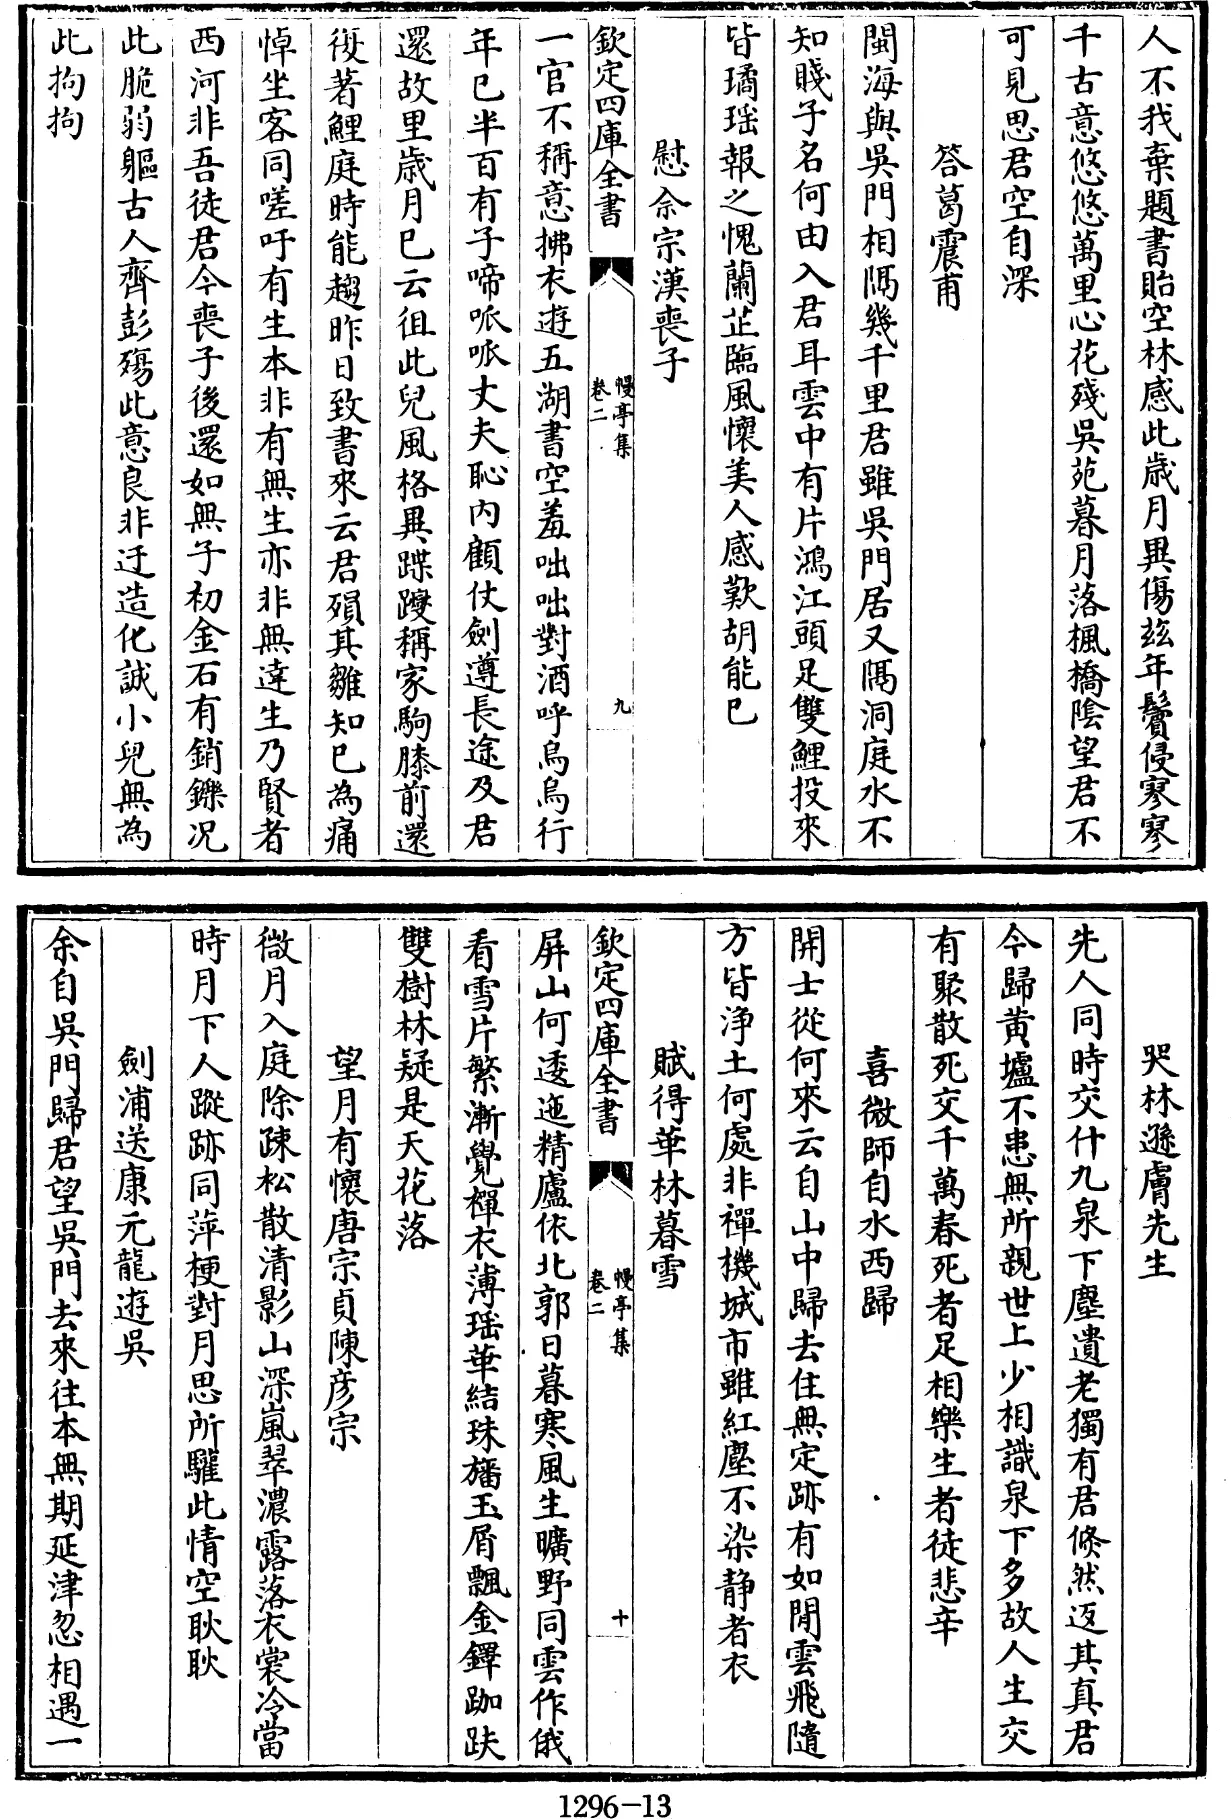 人不我棄題書貽空林感此歲月異傷兹年鬢侵寥寥
千古意悠悠萬里心花殘吳苑暮月落楓橋陰望君不
可見思君空自深
答葛震甫
閩海與吳門相隔幾千里君雖吳門居又隔洞庭水不
知賤子名何由入君耳雲中有片鴻江頭足雙鯉投來
皆璚瑶報之愧蘭芷臨風懷美人感歎胡能已
慰佘宗漢喪子
欽定四庫全書
幔亭集
卷二
九
一官不稱意拂衣遊五湖書空羞咄咄對酒呼烏烏行
年已半百有子啼呱呱丈夫恥内顧仗劍遵長途及君
還故里歲月已云徂此兒風格異蹀躞稱家駒膝前還
復著鯉庭時能趨昨日致書來云君殞其雛知已為痛
悼坐客同嗟吁有生本非有無生亦非無達生乃賢者
西河非吾徒君今喪子後還如無子初金石有銷鑠况
此脆弱軀古人齊彭殤此意良非迂造化誠小兒無為
此拘拘
哭林遜膚先生
先人同時交什九泉下塵遺老獨有君倐然返其真君
今歸黄壚不患無所親世上少相識泉下多故人生交
有聚散死交千萬春死者足相樂生者徒悲辛
喜微師自水西歸
開士從何來云自山中歸去住無定跡有如閒雲飛隨
方皆浄土何處非禪機城市雖紅塵不染静者衣
賦得華林暮雪
欽定四庫全書
幔亭集
卷二
十
屏山何逶迤精廬依北郭日暮寒風生曠野同雲作俄
看雪片繁漸覺禪衣薄瑶華結珠旛玉屑飄金鐸跏趺
雙樹林疑是天花落
望月有懷唐宗貞陳彦宗
微月入庭除疎松散清影山深嵐翠濃露落衣裳冷當
時月下人蹤跡同萍梗對月思所驩此情空耿耿
劍浦送康元龍遊吳
余自吳門歸君望吳門去來往本無期延津忽相遇一
1296-13